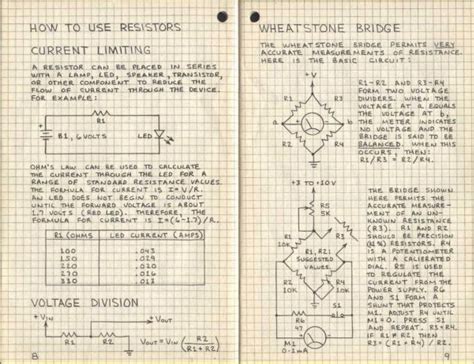 HOW TO USE RESISTORS
CURRENT LIMITING
A RESISTOR CAN BE PLACED IN SERIES
WITH A LAMP, LED, SPEAKER, TRANSISTOR,
OR OTHER COMPONENT TO REDUCE THE
FLOW OF CURRENT THROUGH THE DEVICE.
FOR EXAMPLE:
R1
B1, 6 VOLTS
LED
OHM'S LAW CAN BE USED TO CALCULATE
THE CURRENT THROUGH THE LED FOR A
RANGE OF STANDARD RESISTANCE VALUES.
THE FORMULA FOR CURRENT IS I=V/R.
AN LED DOES NOT BEGIN TO CONDUCT
UNTIL THE FORWARD VOLTAGE IS ABOUT
1.7 VOLTS (RED LED). THEREFORE, THE
FORMULA FOR CURRENT IS I=(6-1.7)/R.
R1 (OHMS) LED CURRENT (AMPS)
100 .043
150
220
270 .016
330 .013
VOLTAGE DIVISION
+VIN
R1
R2
VOUT
VOUT = VIN (R2/(R1+R2))
8
WHEATSTONE BRIDGE
THE WHEATSTONE BRIDGE PERMITS VERY
ACCURATE MEASUREMENTS OF RESISTANCE.
HERE IS THE BASIC CIRCUIT:
+V
R1
R3
a
b
R2
R4
R1-R2 AND R3-R4
FORM TWO VOLTAGE
DIVIDERS. WHEN THE
VOLTAGE AT a EQUALS
THE VOLTAGE AT b,
THE METER INDICATES
NO VOLTAGE AND THE
BRIDGE IS SAID TO BE
BALANCED. WHEN THIS
OCCURS, THEN:
R1/R3 = R2/R4.
+3 TO +10 V
R5
5K
R1
10K
R3
R1, R2:
SUGGESTED
VALUES
R2
10K
R4
10K
R6
47
S1
M1
0-1 mA
THE BRIDGE SHOWN
HERE PERMITS THE
ACCURATE MEASURE-
MENT OF AN UN-
KNOWN RESISTANCE
(R3). R1 AND R2
SHOULD BE PRECISION
RESISTORS. R4
IS A POTENTIOMETER
WITH A CALIBRATED
DIAL. R5 IS USED
TO REGULATE THE
CURRENT FROM THE
POWER SUPPLY. R6
AND S1 FORM A
SHUNT THAT PROTECTS
M1. ADJUST R4 UNTIL
M1=0. PRESS S1
AND REPEAT. R3=R4
IF R1=R2.
9